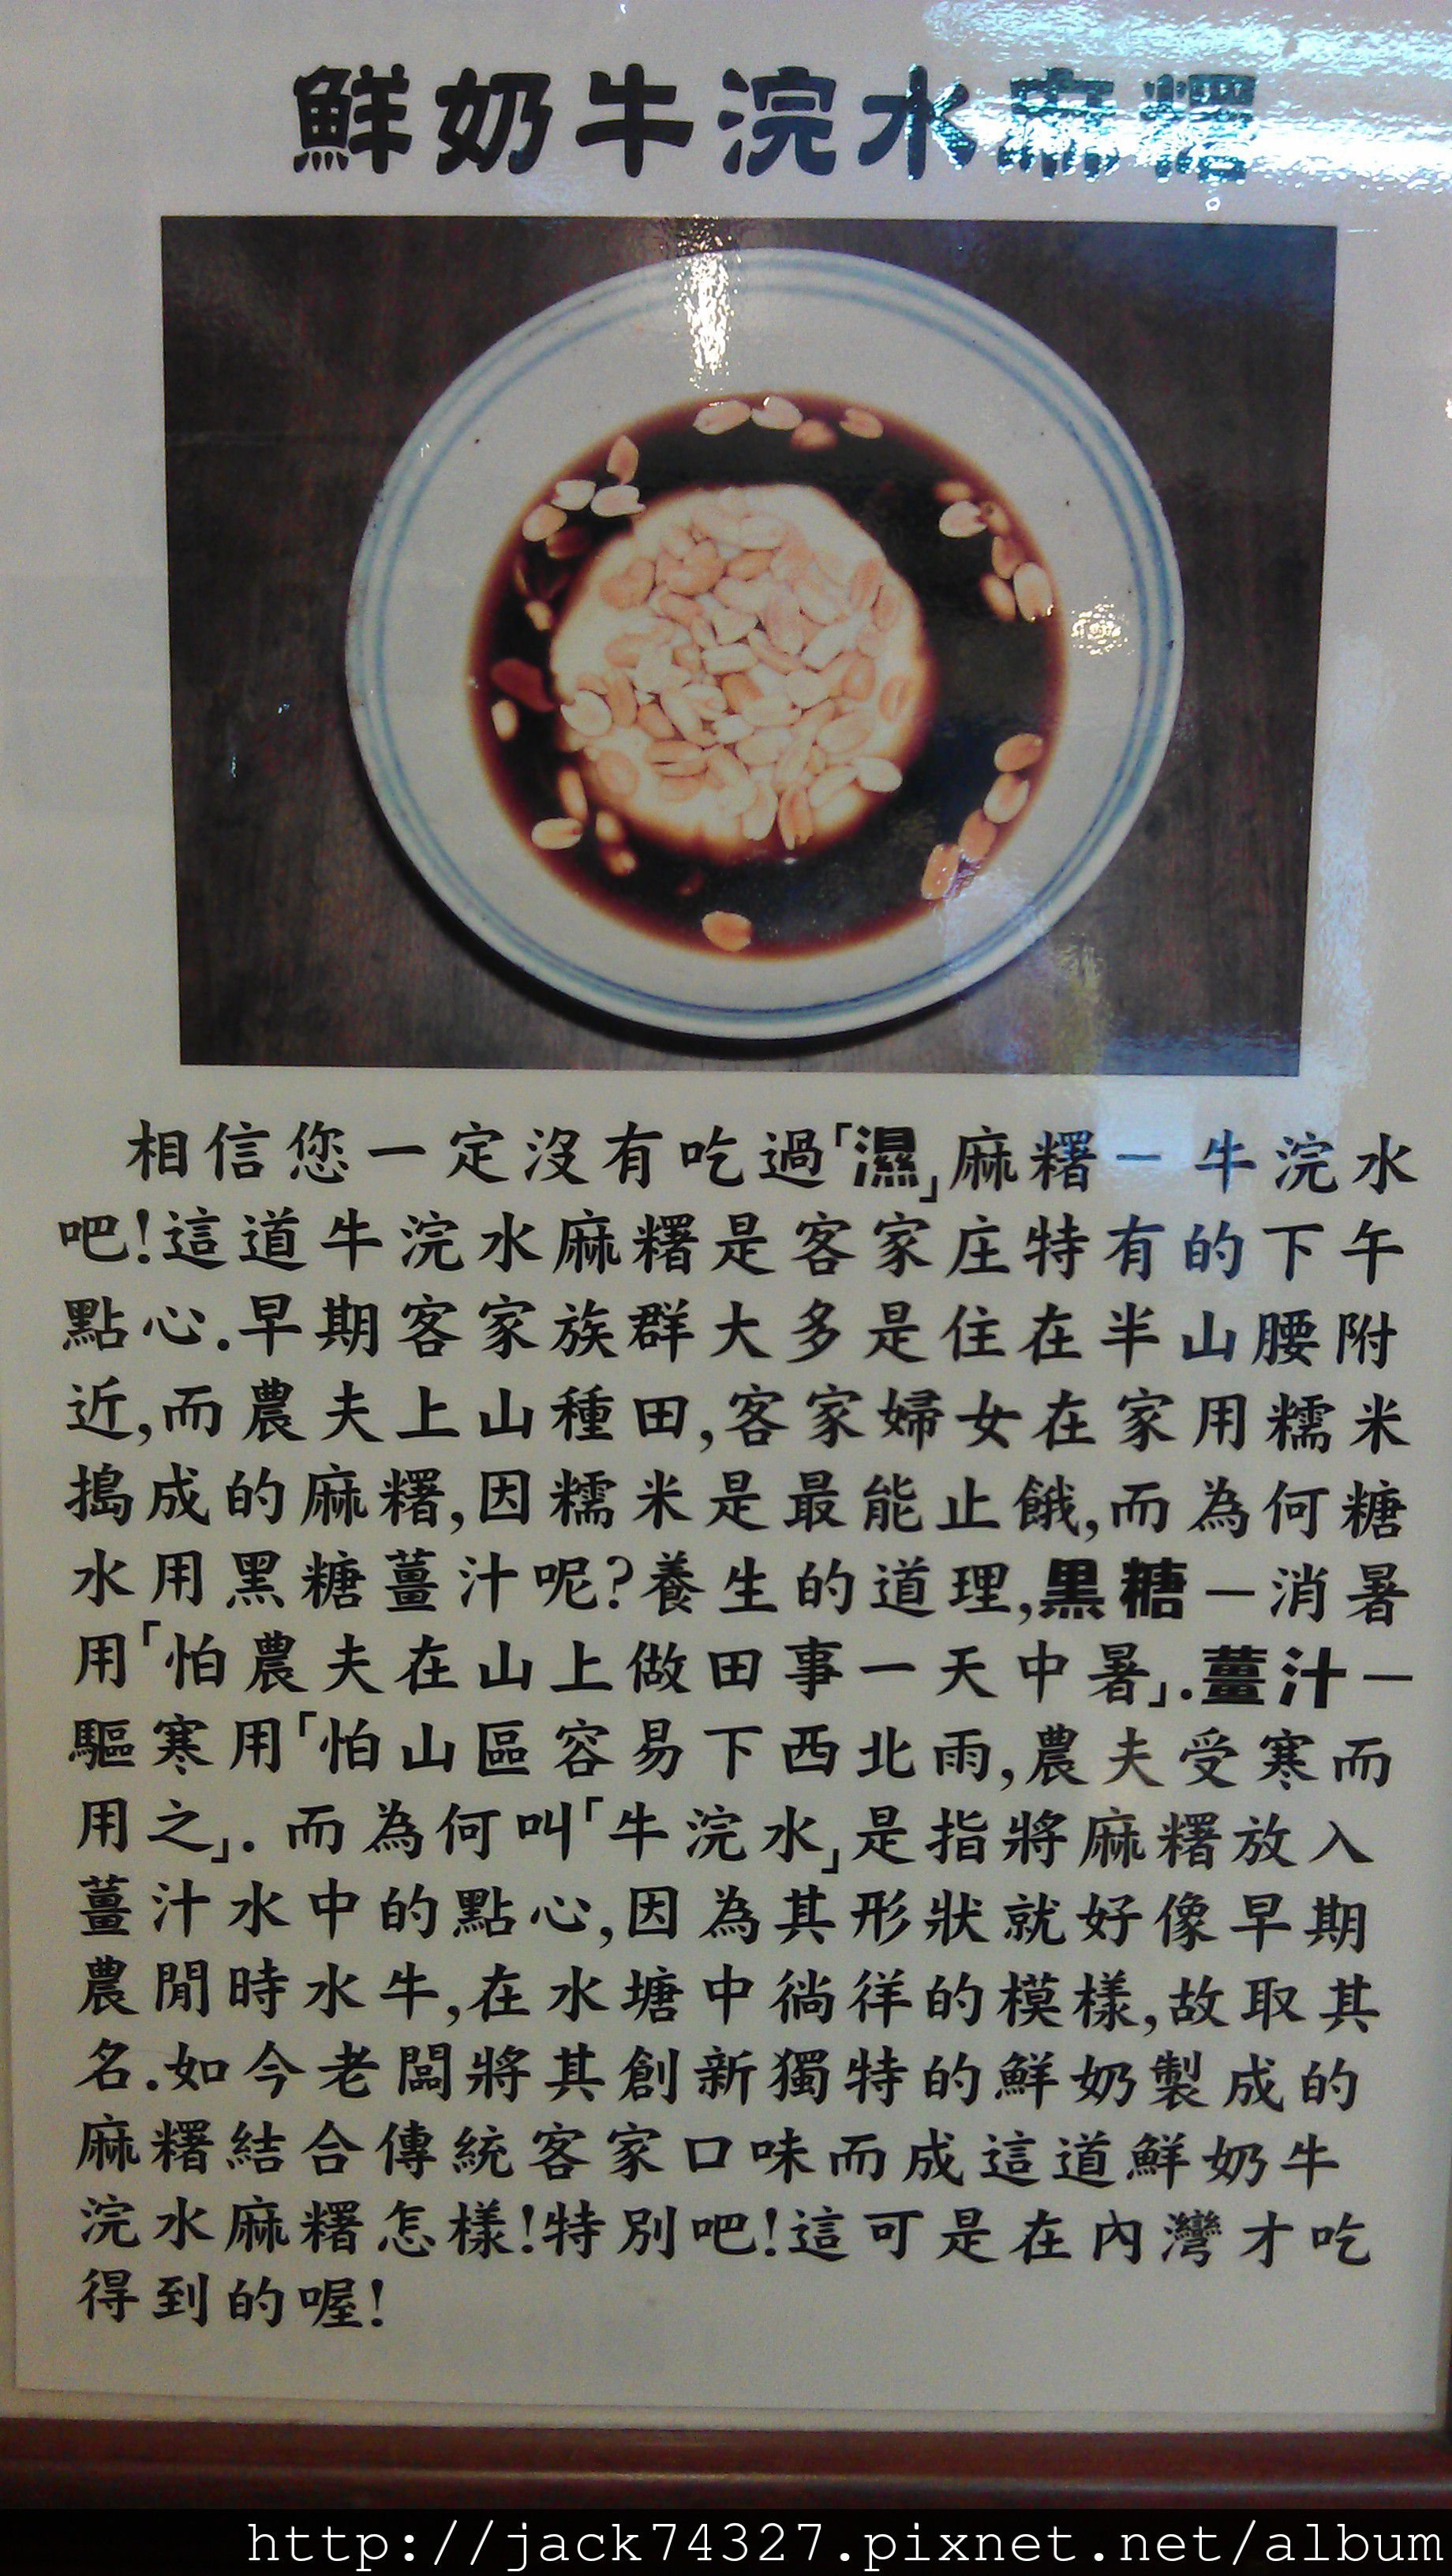 鮮奶牛浣水麻糬
相信您一定沒有吃過「濕」麻糬－牛浣水
吧!這道牛浣水麻糬是客家庄特有的下午
點心.早期客家族群大多是住在半山腰附
近,而農夫上山種田,客家婦女在家用糯米
搗成的麻糬,因糯米是最能止餓,而為何糖
水用黑糖薑汁呢?養生的道理,黑糖－消暑
用「怕農夫在山上做田事一天中暑」.薑汁－
驅寒用「怕山區容易下西北雨,農夫受寒而
用之」.而為何叫「牛浣水」是指將麻糬放入
薑汁水中的點心,因為其形狀就好像早期
農閒時水牛,在水塘中徜徉的模樣,故取其
名.如今老闆將其創新獨特的鮮奶製成的
麻糬結合傳統客家口味而成這道鮮奶牛
浣水麻糬怎樣!特別吧!這可是在內灣才吃
得到的喔!
http://jack74327.pixnet.net/album